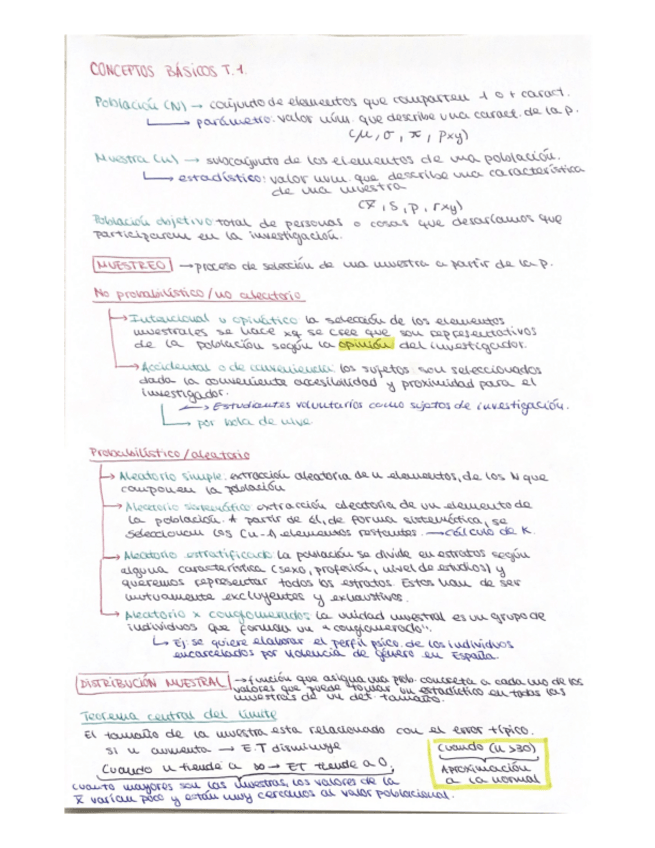 CONCEPTOS BÁSICOS T.1.
Población (N) → conjunto de elementos que comparten 1 o + caract.
→ parámetro: valor núm. que describe una caract. de la p.
(μ, σ, π, ρxy)
Muestra (n) → subconjunto de los elementos de una población.
→ estadístico: valor num. que describe una característica
de una muestra
(x̄, S, p, rxy)
Población objetivo: total de personas o cosas que desaríamos que
participaran en la investigación.
MUESTREO → proceso de selección de una muestra a partir de la p.
No probabilístico / no aleatorio
→ Intencional u opinático: la selección de los elementos
muestrales se hace xq se cree que son representativos
de la población según la opinión del investigador.
→ Accidental o de conveniencia: los sujetos son seleccionados
dada la conveniente accesibilidad y proximidad para el
investigador.
→ Estudiantes voluntarios como sujetos de investigación.
→ por bola de nieve.
Probabilístico / aleatorio
→ Aleatorio simple: extracción aleatoria de n elementos, de los N que
componen la población
→ Aleatorio sistemático: extracción aleatoria de un elemento de
la población. A partir de él, de forma sistemática, se
seleccionan los (n-1) elementos restantes. → cálculo de K.
→ Aleatorio estratificado: la población se divide en estratos según
alguna característica (sexo, profesión, nivel de estudios) y
queremos representar todos los estratos. Estos han de ser
mutuamente excluyentes y exhaustivos.
→ Aleatorio x conglomerados: la unidad muestral es un grupo de
individuos que forman un "conglomerado".
→ Ej: se quiere elaborar el perfil psico. de los individuos
encarcelados por violencia de género en España.
DISTRIBUCIÓN MUESTRAL → función que asigna una prob. concreta a cada uno de los
valores que puede tomar un estadístico en todas las
muestras de un det. tamaño.
Teorema central del límite
El tamaño de la muestra esta relacionado con el error típico.
si n aumenta → E.T disminuye
Cuando n tiende a ∞ → ET tiende a 0,
cuanto mayores son las muestras, los valores de la
x̄ varían poco y están muy cercanos al valor poblacional.
Cuando (n >30)
Aproximación
a la normal